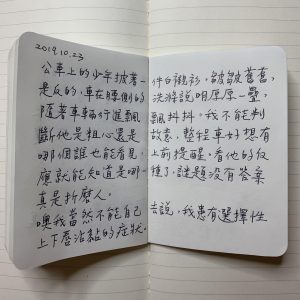 2019.10.23
公車上的少年披著一件白襯衫，皺皺舊舊，
是反的，車在腰側的洗滌說明厚厚一疊，
隨著車輛行進飄飄抖抖。我不能判
斷他是粗心還是故意，整程車好想有
哪個誰也能看見，上前提醒，看他的反
應就能知道是哪種了，謎題沒有答案
真是折磨人。
噢我當然不能自己去說，我患有選擇性
上下唇沾黏的症狀。